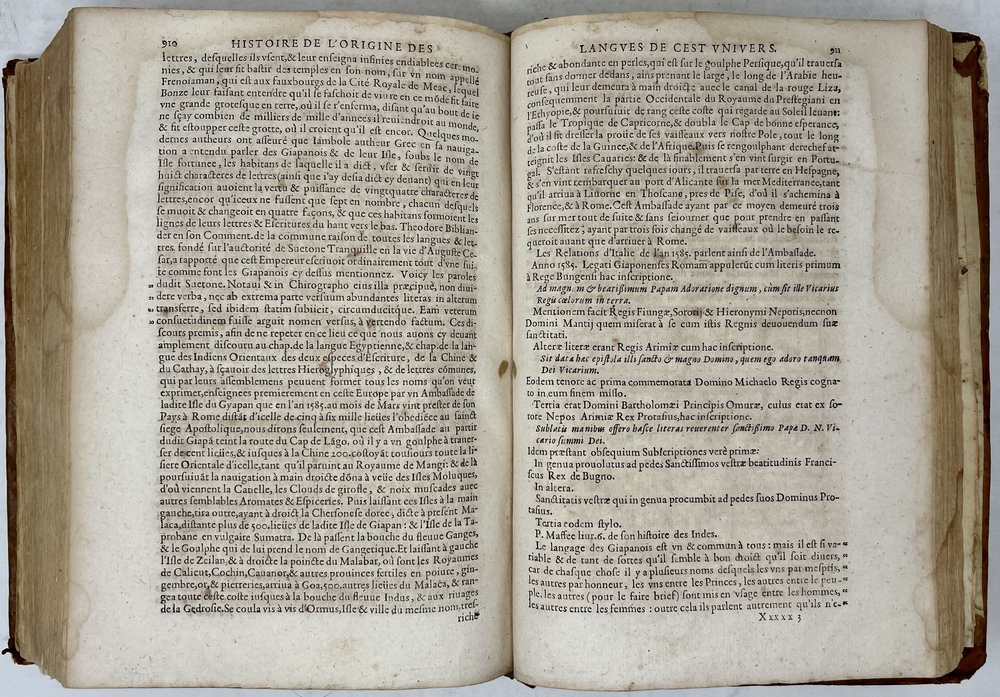 910
HISTOIRE DE L'ORIGINE DES
lettres, desquelles ils vsent,& leur enseigna infinies endiablees cermo-
nies, & qui leur fit bastir des temples en son nom, sur vn nom appellé
Frenoiaman, qui est aux fauxbourgs de la Cité Royale de Meac, lequel
Bonze leur faisant entendre qu'il se faschoit de viure en ce mõde fit faire
vne grande grotesque en terre, où il se r'enferma, disant qu'au bout de ie
ne sçay combien de milliers de mille d'années il reuiendroit au monde,
& fit estoupper ceste grotte, où il croient qu'il est encor. Quelques mo-
dernes autheurs ont asseuré que Iambole autheur Grec en sa nauiga-
tion a entendu parler des Giapanois & de leur Isle, soubs le nom de
Isle fortunee, les habitans de laquelle il a dict, vser & seruir de vingt
huict characteres de lettres(ainsi que i'ay desia dict cy deuant) qui en leur
signification auoient la vertu & puissance de vingtquatre characteres de
lettres,encor qu'iceux ne fussent que sept en nombre, chacun desquels
se muoit & changeoit en quatre façons, & que ces habitans formoient les
lignes de leurs lettres & Escritures du haut vers le bas. Theodore Biblian-
der en son Comment.de la commune raison de toutes les langues & let-
tres fondé sur l'auctorité de Suetone Tranquille en la vie d'Auguste Ce-
sar,a rapporté que cest Empereur escriuoit ordinairement tout d'vne sui-
te comme font les Giapanois cy dessus mentionnez. Voicy les paroles
dudit Suetone. Notaui & in Chirographo eius illa præcipuè, non diui-
dere verba, nec ab extrema parte versuum abundantes literas in alterum
transferre, sed ibidem statim subiicit, circumducitque. Eam veterum
consuetudinem fuisse arguit nomen versus, à vertendo factum. Ces di-
scours premis, afin de ne repeter en ce lieu ce que nous auons cy deuant
amplement discouru au chap.de la langue Egyptienne,& chap.de la lan-
gue des Indiens Orientaux des deux especes d'Escriture, de la Chine &
du Cathay, à sçauoir des lettres Hieroglyphiques , & de lettres cõmunes,
qui par leurs assemblemens peuuent former tous les noms qu'on veut
exprimer,enseignees premierement en ceste Europe par vn Ambassade de
ladite Isle du Gyapan que en l'an 1585.au mois de Mars vint prester de son
Pays à Rome distãt d'icelle de cinq à six mille lieües l'obediẽce au sainct
siege Apostolique,nous dirons seulement, que cest Ambassade au partir
dudit Giapã teint la route du Cap de Lãgo, où il y a vn goulphe à trauer-
ser de cent lieües,& iusques à la Chine 200.costoyãt tousiours toute la li-
siere Orientale d'icelle,tant qu'il paruint au Royaume de Mangi: & de là
poursuiuãt la nauigation à main droicte dõna à veüe des Isles Moluques,
d'où viennent la Canelle, les Clouds de girofle, & noix muscades auec
autres semblables Aromates & Espiceries. Puis laissant ces Isles à la main
gauche,tira outre,ayant à droict la Chersonese doree, dicte à present Ma-
laca,distante plus de 500.lieües de ladite Isle de Giapan: & l'Isle de la Ta-
probane en vulgaire Sumatra. De là passent la bouche du fleuue Ganges,
& le Goulphe qui de lui prend le nom de Gangetique.Et laissant à gauche
l'Isle de Zeilan,& à droicte la poincte du Malabar, où sont les Royaumes
de Calicut,Cochin,Cauanor,& autres prouinces fertiles en poiure, gin-
gembre,or,& pierreries,arriua à Goa,500.autres lieües du Malaca, & ran-
gea toute ceste coste iusques à la bouche du fleuue Indus, & aux riuages
de la Gedrosie.Se coula vis à vis d'Ormus,Isle & ville du mesme nom,tres-
riche
LANGVES DE CEST VNIVERS.
911
riche & abondante en perles,qui est sur le goulphe Persique,qu'il trauersa
tout sans donner dedans, ains prenant le large, le long de l'Arabie heu-
reuse , qui leur demeura à main droicte auec le canal de la rouge Liza,
consequemment la partie Occidentale du Royaume du Prestegiani en
l'Ethyopie,& poursuiuit de rang ceste coste qui regarde au Soleil leuant:
passa le Tropique de Capricorne,& doubla le Cap de bonne esperance,
d'où il fit dresser la proüe de ses vaisseaux vers nostre Pole, tout le long
de la coste de la Guinee,& de l'Afrique.Puis se rengoulphant derechef at-
teignit les Isles Cauaries: & de là finablement s'en vint surgir en Portu-
gal. S'estant rafreschy quelques iours, il trauersa par terre en Hespagne,
& s'en vint rembarquer au port d'Alicante sur la mer Mediterranee,tant
qu'il arriua à Liuorne en Thoscane, pres de Pise, d'où il s'achemina à
Florence,& à Rome. Cest Ambassade ayant par ce moyen demeuré trois
ans sur mer tout de suite & sans seiourner que pour prendre en passant
ses necessitez ; ayant par trois fois changé de vaisseaux où le besoin le re-
queroit auant que d'arriuer à Rome.
Les Relations d'Italie de l'an 1585. parlent ainsi de l'Ambassade.
Anno 1585. Legati Giaponenses Romam appulerũt cum literis primum
à Rege Bungensi hac inscriptione.
Ad magnum & beatissimum Papam Adoratione dignum, cùm sit ille Vicarius
Regis cœlorum in terra.
Mentionem facit Regis Fiungæ,Sorotij & Hieronymi Nepotis,necnon
Domini Mantij quem miserat à se cum istis Regnis deuouendum suæ
sanctitati.
Alteræ literæ erant Regis Arimiæ cum hac inscriptione.
Sit data hæc epistola illi sancto & magno Domino, quem ego adoro tanquam
Dei Vicarium.
Eodem tenore ac prima commemorata Domino Michaelo Regis cogna-
to in eum finem misso.
Tertia erat Domini Bartholomæi Principis Omuræ, cuius erat ex so-
rore Nepos Arimiæ Rex Protasius,hac inscriptione.
Sublatis manibus offero hasce literas reuerenter sanctissimo Papæ D. N. Vi-
cario summi Dei.
Idem præstant obsequium Subscriptiones verè primæ:
In genua prouolutus ad pedes Sanctissimos vestræ beatitudinis Franci-
scus Rex de Bugno.
In altera.
Sanctitatis vestræ qui in genua procumbit ad pedes suos Dominus Pro-
tasius.
Tertia eodem stylo.
P. Maffee liur.6. de son histoire des Indes.
Le langage des Giapanois est vn & commun à tous : mais il est si va-
riable & de tant de sortes qu'il semble à bon droict qu'il soit diuers,
car de chasque chose il y a plusieurs noms desquels les vns par mespris,
les autres par honneur, les vns entre les Princes, les autres entre le peu-
ple. les autres (pour le faire brief) sont mis en vsage entre les hommes,
les autres entre les femmes : outre cela ils parlent autrement qu'ils n'e-
Xxxxx 3